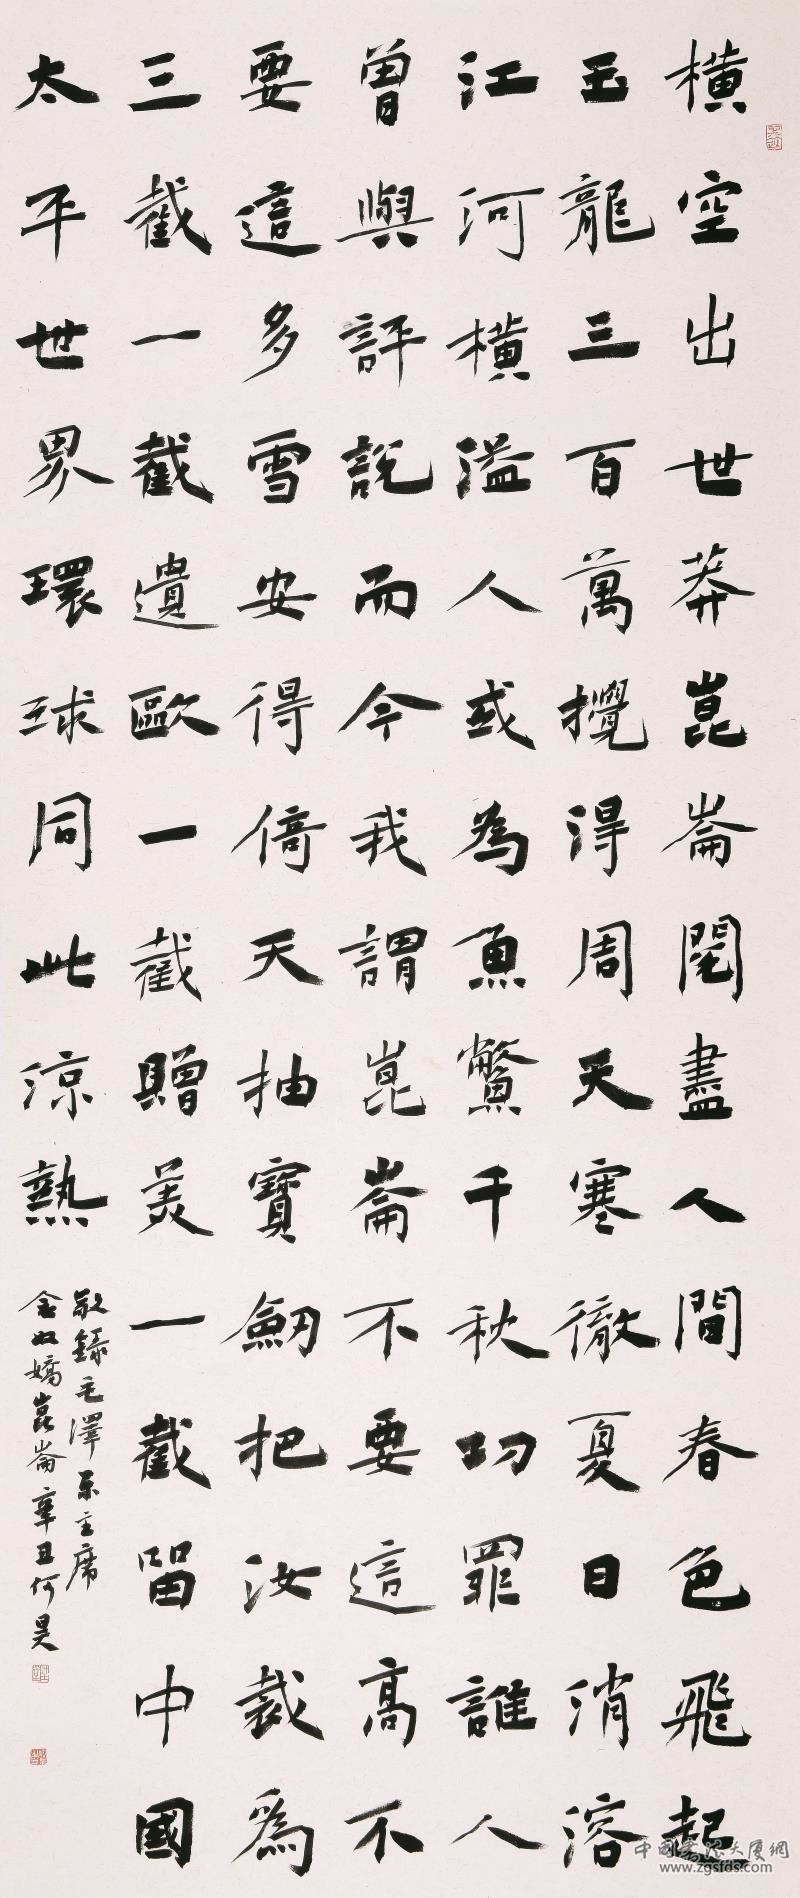 橫空出世莽崑崙閱盡人間春色飛起
玉龍三百萬攪得周天寒徹夏日消溶
江河橫溢人或為魚鱉千秋功罪誰人
曾與評說而今我謂崑崙不要這高不
要這多雪安得倚天抽寶劒把汝裁為
三截一截遺歐一截贈美一截留中國
太平世界環球同此涼熱
敬錄毛澤東主席
念奴嬌崑崙辛丑何昊
中國書法大廈網
www.zgsfds.com